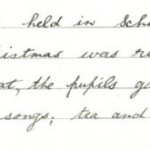 held in Sch
istmas was
at, the pupils
songs, tea and